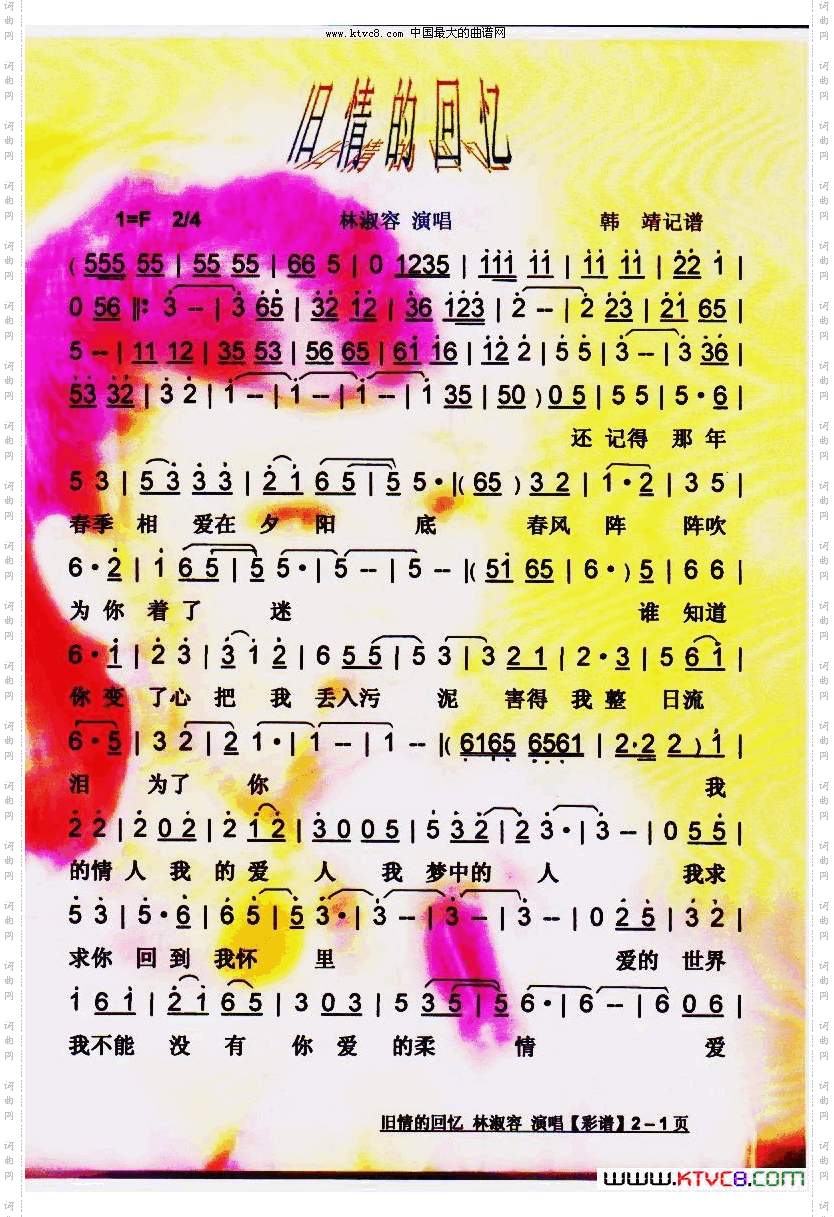 www.ktvc8.com 中国最大的曲谱网
旧情的回忆
1=F 2/4 林淑容 演唱 韩 靖记谱
( 555 55 | 55 55 | 66 5 | 0 1235 | 111 11 | 11 11 | 22 1 |
0 56 ‖: 3 -- | 3 65 | 32 12 | 36 123 | 2 -- | 2 23 | 21 65 |
5 -- | 11 12 | 35 53 | 56 65 | 61 16 | 12 2 | 5 5 | 3 -- | 3 36 |
53 32 | 3 2 | 1 -- | 1 -- | 1 -- | 1 35 | 50 ) 0 5 | 5 5 | 5 · 6 |
还 记得 那 年
5 3 | 5 3 3 3 | 2 1 6 5 | 5 5 · |( 65 ) 3 2 | 1 · 2 | 3 5 |
春季 相 爱在 夕 阳 底 春风 阵 阵吹
6 · 2 | 1 6 5 | 5 5 · | 5 -- | 5 -- |( 51 65 | 6 · ) 5 | 6 6 |
为 你 着 了 迷 谁 知道
6 · 1 | 2 3 | 3 1 2 | 6 5 5 | 5 3 | 3 2 1 | 2 · 3 | 5 6 1 |
你 变 了心 把 我 丢入污 泥 害得 我 整 日流
6 · 5 | 3 2 | 2 1 · | 1 -- | 1 -- |( 6165 6561 | 2·2 2 ) 1 |
泪 为了 你 我
2 2 | 2 0 2 | 2 1 2 | 3 0 0 5 | 5 3 2 | 2 3 · | 3 -- | 0 5 5 |
的情 人 我 的 爱 人 我 梦中的 人 我求
5 3 | 5 · 6 | 6 5 | 5 3 · | 3 -- | 3 -- | 3 -- | 0 2 5 | 3 2 |
求你 回 到 我怀 里 爱的 世界
1 6 1 | 2 1 6 5 | 3 0 3 | 5 3 5 | 5 6 · | 6 -- | 6 0 6 |
我不能 没 有 你 爱 的柔 情 爱
旧情的回忆 林淑容 演唱【彩谱】2－1页
www.KTVC8.com
词曲网